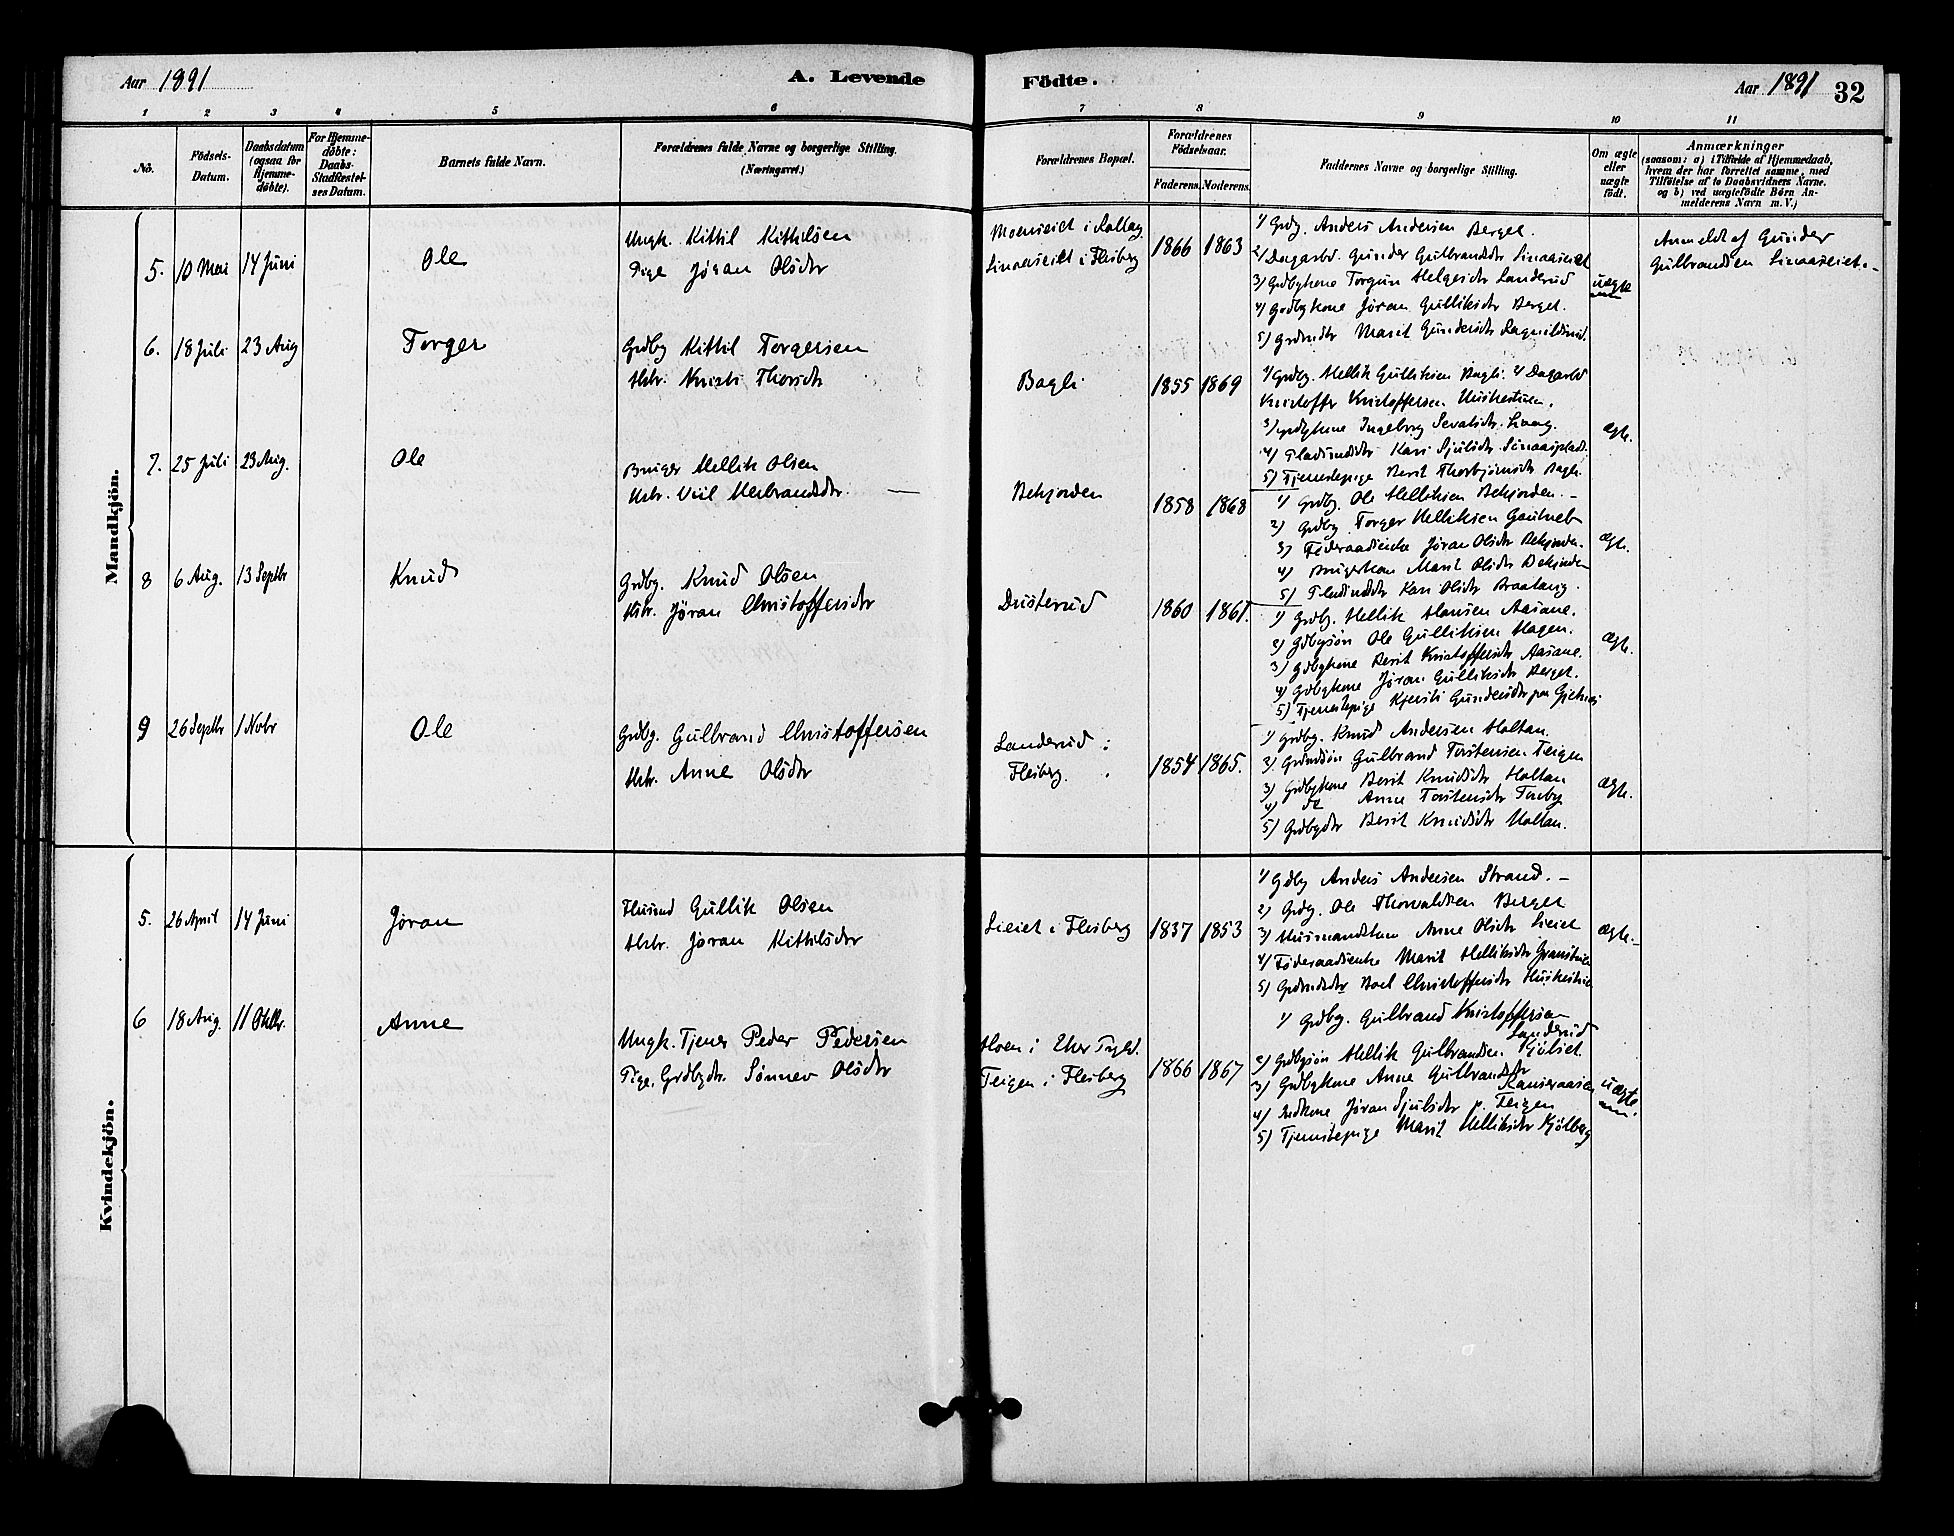 Aar 1891
A. Levende Födte.
Aar 1891 32
1 2 3 4 5 6 7 8 9 10 11
No.
Födsels-
Datum.
Daabsdatum
(ogsaa for
Hjemme-
döbte).
For Hjemme-
döbte:
Daabs-
Stadfæstel-
ses Datum.
Barnets fulde Navn.
Forældrenes fulde Navne og borgerlige Stilling.
(Næringsvei.)
Forældrenes Bopæl.
Forældrenes
Födselsaar.
Faderens. Moderens.
Faddernes Navne og borgerlige Stilling.
Om ægte
eller
uægte
födt.
Anmærkninger
(saasom: a) i Tilfælde af Hjemmedaab,
hvem der har forrettet samme, med
Tilföielse af to Daabsvidners Navne,
og b) ved uægtefödte Börn An-
melderens Navn m. V.)
Mandkjön.
5. 10 Mai 14 Juni Ole
Ungk. Kittil Kittilsen
Pige Jøran Olsdtr
Moenseiet i Rollag
Linaaseiet i Flesberg
1866 1863
1) Grdbg. Anders Andersen Berget.
2) Dagarbd. Gunder Gulbrandsen Linaaseiet
3) Grdbgkone Torgun Helgesdtr Landerud
4) Grdbgkone Jøran Gulliksdtr Berget.
5) Grdmdtr Marit Gundersdtr Ragnildrud.
uægte
Anmeldt af Gunder
Gulbrandsen Linaaseiet.
6. 18 Juli 23 Aug Torger
Grdbg Kittil Torgersen
Hstr. Kristi Thorsdtr
Bagli
1855 1869
1) Grdbg. Hellik Gulliksen Bagli. 2) Dagarbd
Kristoffer Kristoffersen Huskestuen.
3) Grdbgkone Ingeborg Sevatsdtr Liaag.
4) Pladsmdtr Kari Sjulsdtr Linaasplads.
5) Tjenestepige Berit Thorbjørnsdtr Bagli.
ægte.
7. 25 Juli 23 Aug. Ole
Bruger Hellik Olsen
Hstr. Viil Herbrandsdtr.
Bekjorden
1858 1868
1) Grdbg. Ole Helliksen Bekjorden.
2) Grdbg Torger Helliksen Gaulneb
3) Føderaadsenke Jøran Olsdtr Bekjorden.
4) Brugerkone Marit Olsdtr Bekjorden
5) Pladsmdtr Kari Olsdtr Braatang.
ægte.
8 6 Aug. 13 Septbr Knud
Grdbg. Knud Olsen
Hstr. Jøran Christoffersdtr
Dusterud
1860 1861.
1) Grdbg. Hellik Hansen Aasane.
2) Gdbgsøn Ole Gulliksen Hagen.
3) Gdbgkone Berit Kristoffersdtr Aasane.
4) Grdbgkone Jøran Gulliksdtr Berget.
5) Tjenestepige Kjersti Gundersdtr paa
ægte.
9 26 Septbr 1 Novbr Ole
Grdbg. Gulbrand Christoffersen
Hstr. Anne Olsdtr
Landerud i
Flesberg.
1854 1865.
1) Grdbg. Knud Andersen Holtan.
2) Grdmdsøn Gulbrand Torstensen Teigen
3) Grdbgkone Berit Knudsdtr Holtan
4) do Anne Torstensdtr Juveby
5) Grdbgdtr Berit Knudsdtr Holtan.
ægte.
Kvindekjön.
5. 26 April 14 Juni Jøran
Husmd Gullik Olsen
Hstr. Jøran Kittilsdtr
Lieiet i Flesberg
1837 1853
1) Gdbg Anders Andersen Strand.
2) Grdbg. Ole Thorvaldsen Berget
3) Husmandskone Anne Olsdtr Lieiet
4) Føderaadsenke Marit Helliksdtr Granstuen
5) Grdmdsdtr Boel Christoffersdtr Huskestuen
ægte.
6 18 Aug. 11 Oktbr. Anne
Ungk. Tjener Peder Pedersen
Pige, Grdbgdtr. Sønnev Olsdtr
Hoen i Eker Prgld.
Teigen i Flesberg
1866 1867
1) Grdbg. Gulbrand Kristoffersen
Landerud
2) Grdbgsøn Hellik Gulbrandsen Kjölset.
3) Grdbgkone Anne Gulbrandsdtr
Ranseraasen
4) Indkone Jøran Sjulsdtr p. Teigen
5) Tjenestepige Marit Helliksdtr Kjölberg
uægte.